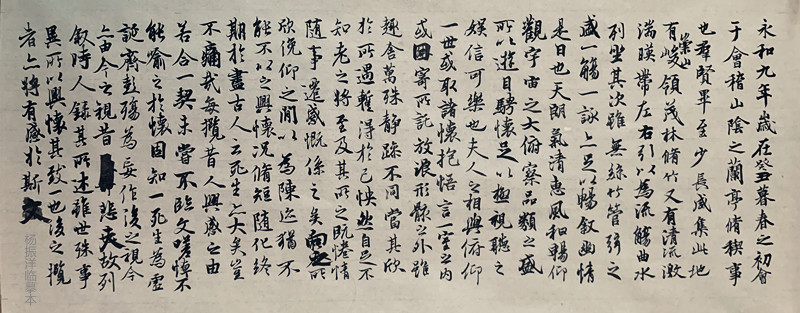 永和九年歲在癸丑暮春之初會
于會稽山陰之蘭亭脩稧事
也群賢畢至少長咸集此地
有崇山峻領茂林脩竹又有清流激
湍暎帶左右引以為流觴曲水
列坐其次雖無絲竹管弦之
盛一觴一詠亦足以暢叙幽情
是日也天朗氣清惠風和暢仰
觀宇宙之大俯察品類之盛
所以遊目騁懷足以極視聽之
娛信可樂也夫人之相與俯仰
一世或取諸懷抱悟言一室之內
或因寄所託放浪形骸之外雖
趣舍萬殊静躁不同當其欣
於所遇蹔得於己怏然自足不
知老之將至及其所之既惓情
隨事遷感慨係之矣向之所
欣俛仰之閒以為陳迹猶不
能不以之興懷況脩短隨化終
期於盡古人云死生亦大矣豈
不痛哉每攬昔人興感之由
若合一契未嘗不臨文嗟悼不
能喻之於懷固知一死生為虛
誕齊彭殤為妄作後之視今
亦由今之視昔悲夫故列
叙時人錄其所述雖世殊事
異所以興懷其致一也後之攬
者亦將有感於斯文
杨振洋临摹本